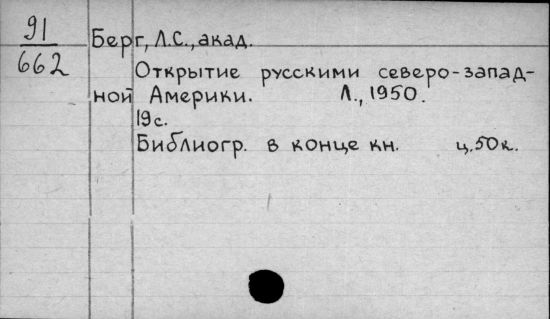 91
662
Берг, Л.С., акад.
Открытие русскими северо-запад-
ной Америки. Л., 1950.
19с.
Библиогр. в конце кн. ц.50к.